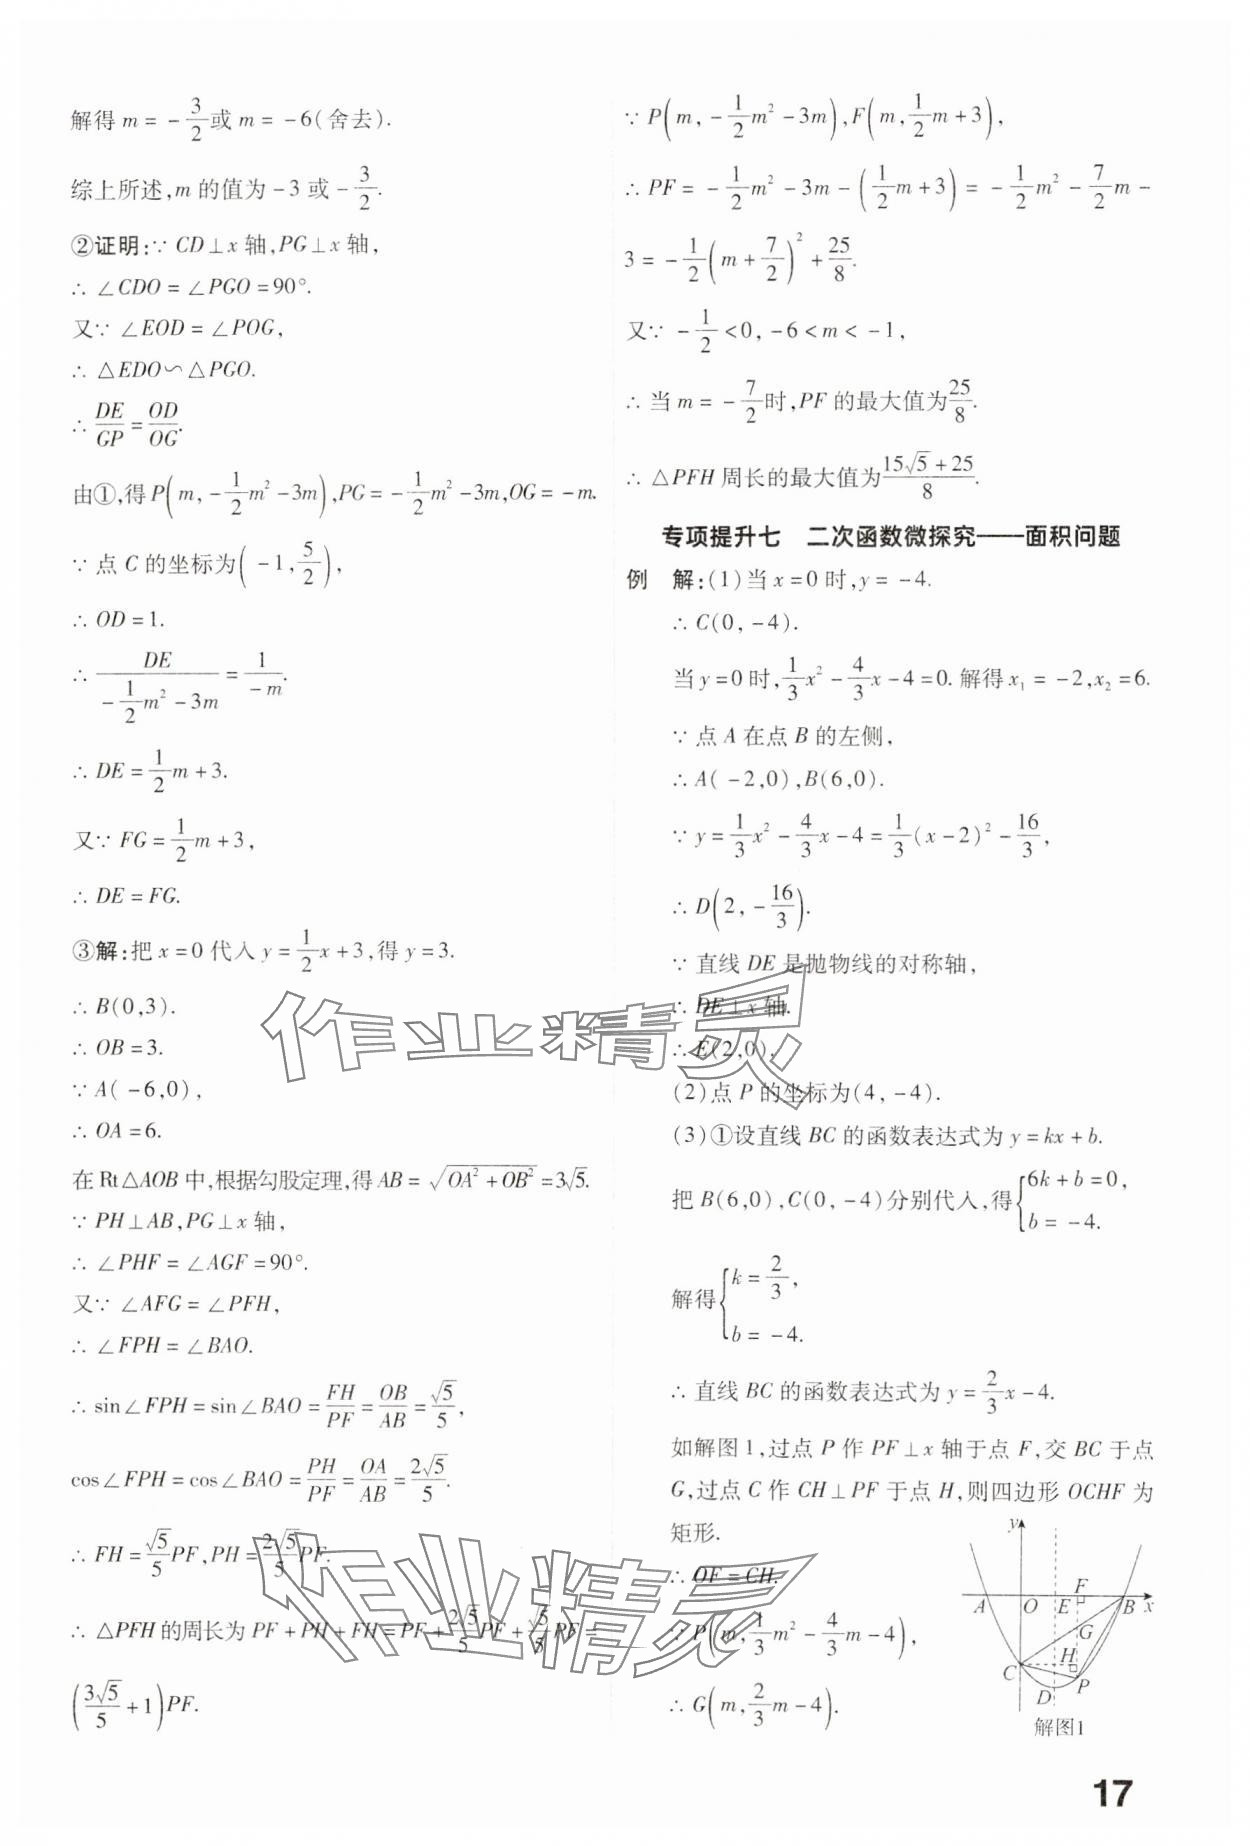 解得 m = -3/2 或 m = -6(舍去).
综上所述,m 的值为 -3 或 -3/2.
②证明:∵ CD⊥x 轴,PG⊥x 轴,
∴ ∠CDO = ∠PGO = 90°.
又∵ ∠EOD = ∠POG,
∴ △EDO∽△PGO.
∴ DE/GP = OD/OG.
由①,得 P(m, -1/2m² - 3m),PG = -1/2m² - 3m,OG = -m.
∵ 点 C 的坐标为(-1, 5/2),
∴ OD = 1.
∴ DE/(-1/2m² - 3m) = 1/(-m).
∴ DE = 1/2m + 3.
又∵ FG = 1/2m + 3,
∴ DE = FG.
③解:把 x = 0 代入 y = 1/2x + 3,得 y = 3.
∴ B(0,3).
∴ OB = 3.
∵ A(-6,0),
∴ OA = 6.
在 Rt△AOB 中,根据勾股定理,得 AB = √(OA² + OB²) = 3√5.
∵ PH⊥AB,PG⊥x 轴,
∴ ∠PHF = ∠AGF = 90°.
又∵ ∠AFG = ∠PFH,
∴ ∠FPH = ∠BAO.
∴ sin∠FPH = sin∠BAO = FH/PF = OB/AB = √5/5,
cos∠FPH = cos∠BAO = PH/PF = OA/AB = 2√5/5.
∴ FH = √5/5PF,PH = 2√5/5PF.
∴ △PFH 的周长为 PF + PH + FH = PF + 2√5/5PF + √5/5PF =
(3√5/5 + 1)PF.
∵ P(m, -1/2m² - 3m),F(m, 1/2m + 3),
∴ PF = -1/2m² - 3m - (1/2m + 3) = -1/2m² - 7/2m -
3 = -1/2(m + 7/2)² + 25/8.
又∵ -1/2 < 0, -6 < m < -1,
∴ 当 m = -7/2 时,PF 的最大值为 25/8.
∴ △PFH 周长的最大值为 (15√5 + 25)/8.
专项提升七 二次函数微探究——面积问题
例 解:(1)当 x = 0 时,y = -4.
∴ C(0, -4).
当 y = 0 时,1/3x² - 4/3x - 4 = 0. 解得 x₁ = -2,x₂ = 6.
∵ 点 A 在点 B 的左侧,
∴ A(-2,0),B(6,0).
∵ y = 1/3x² - 4/3x - 4 = 1/3(x - 2)² - 16/3,
∴ D(2, -16/3).
∵ 直线 DE 是抛物线的对称轴,
∴ DE⊥x 轴.
∴ E(2,0).
(2)点 P 的坐标为(4, -4).
(3)①设直线 BC 的函数表达式为 y = kx + b.
把 B(6,0),C(0, -4)分别代入,得{6k + b = 0, b = -4.
解得{k = 2/3, b = -4.
∴ 直线 BC 的函数表达式为 y = 2/3x - 4.
如解图 1,过点 P 作 PF⊥x 轴于点 F,交 BC 于点
G,过点 C 作 CH⊥PF 于点 H,则四边形 OCHF 为
矩形.
∴ OF = CH.
∵ P(m, 1/3m² - 4/3m - 4),
∴ G(m, 2/3m - 4).
y
F
A O E B x
G
H
C
P
D
解图1
作业精灵
作业精灵
17